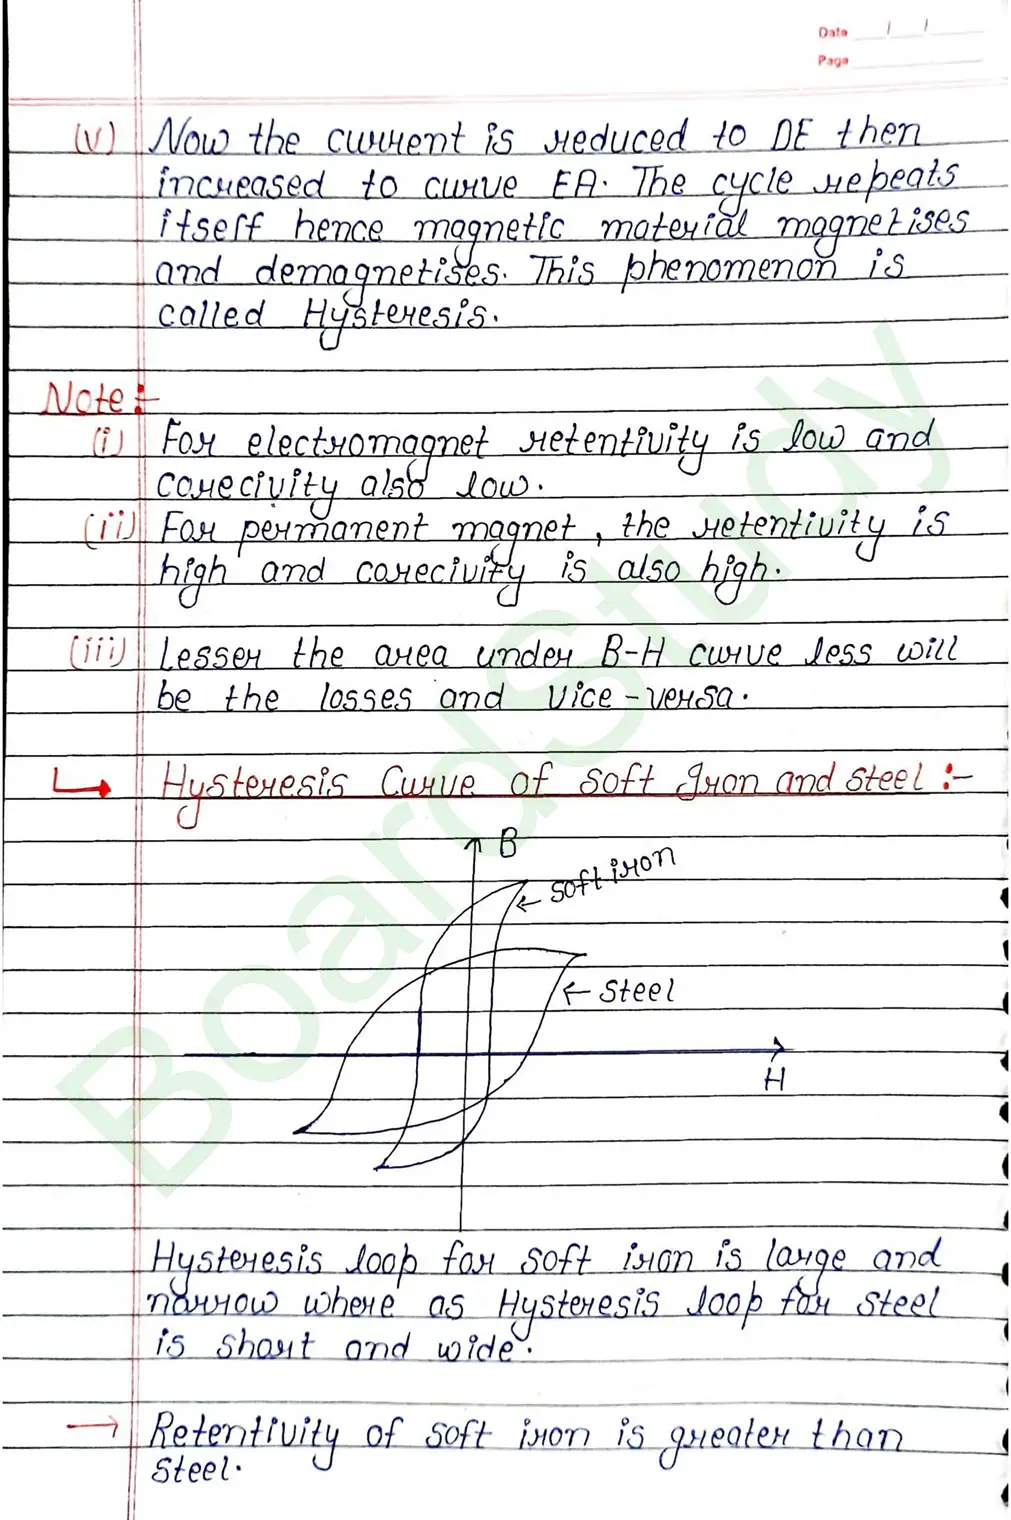 Date / /
Page
(v) Now the current is reduced to DE then
increased to curve EA. The cycle repeats
itself hence magnetic material magnetises
and demagnetises. This phenomenon is
called Hysteresis.
Note :-
(i) For electromagnet retentivity is low and
corecivity also low.
(ii) For permanent magnet, the retentivity is
high and corecivity is also high.
(iii) Lesser the area under B-H curve less will
be the losses and vice-versa.
↳ Hysteresis Curve of soft Iron and steel :-
B
← soft iron
← steel
H
Hysteresis loop for soft iron is large and
narrow where as Hysteresis loop for steel
is short and wide.
→ Retentivity of soft iron is greater than
steel.
BoardStudy